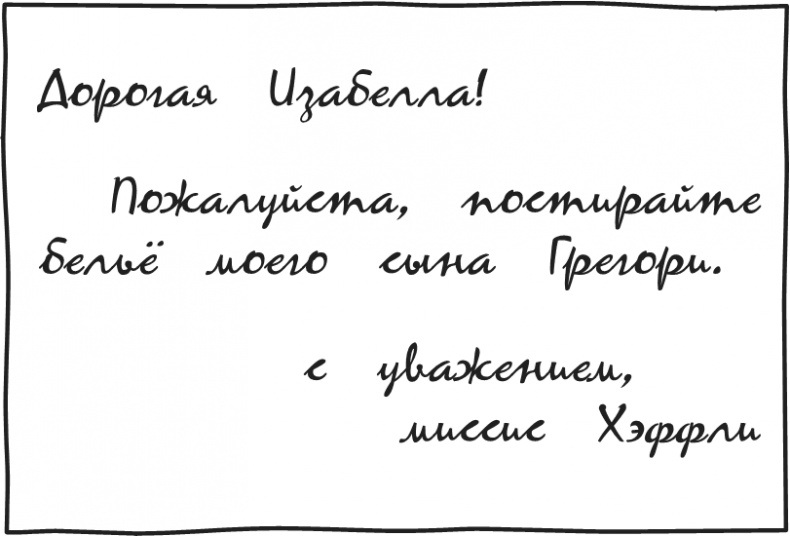 Дорогая Изабелла!
Пожалуйста, постирайте
бельё моего сына Грегори.
с уважением,
миссис Хэффли